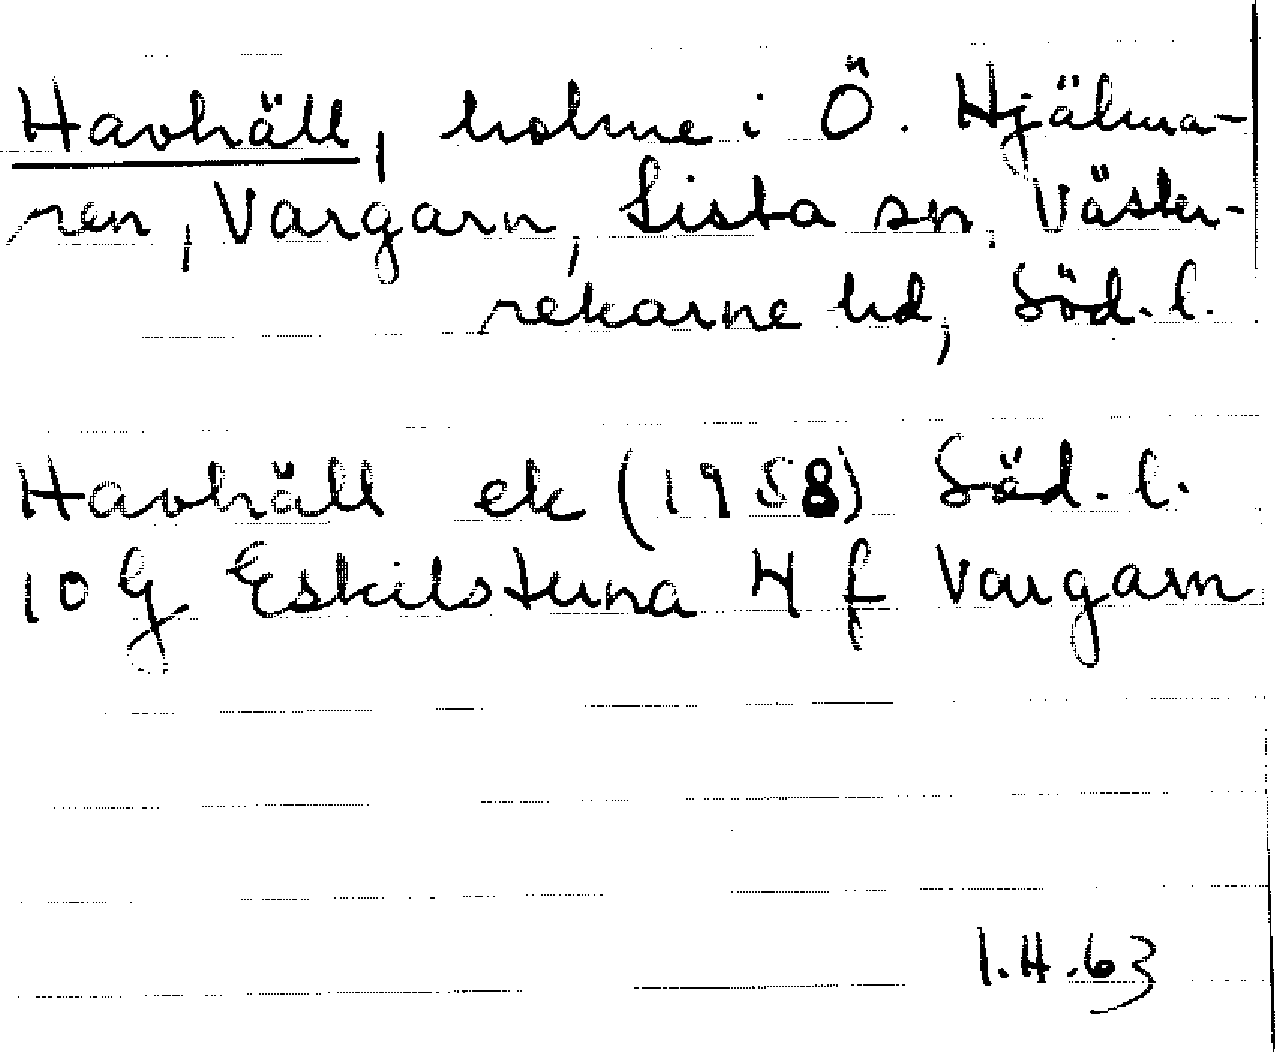 Havhäll, holme i Ö. Hjälma-
ren, Vargarn, Lista sn. Väster-
rekarne hd, Söd. l.
Havhäll ek (1958) Söd. l.
10 G Eskilstuna 4 f Vargarn
1.4.63